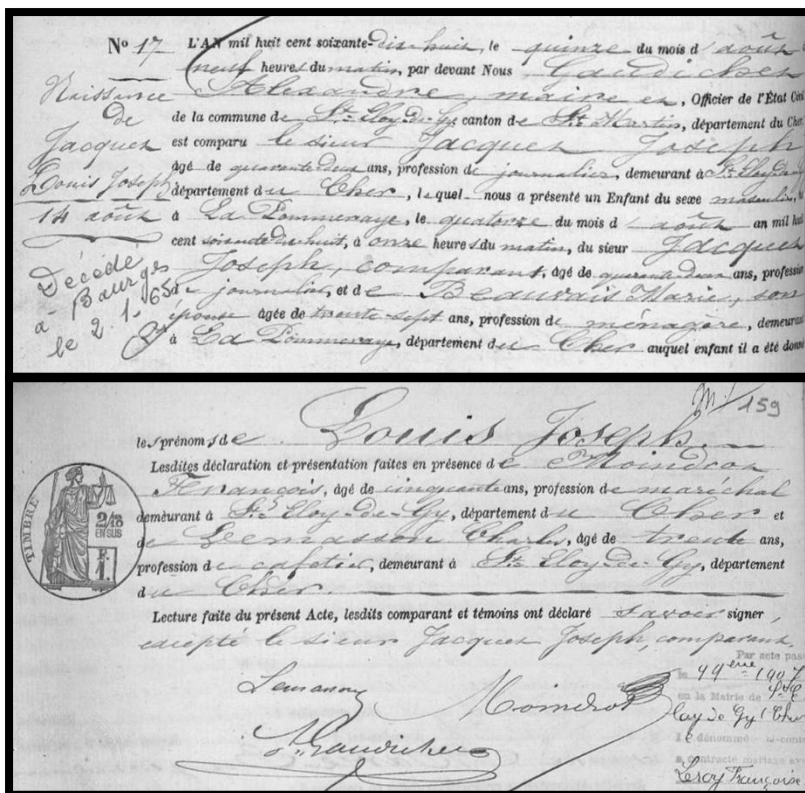 N° 17 L'AN mil huit cent soixante-dix huit, le quinze du mois d'août
neuf heures du matin, par devant Nous Gaudichon
Naissance Alexandre, maire et, Officier de l'État Civil
de de la commune de St Eloy-de-Gy canton de St Martin, département du Cher
Jacquet est comparu le sieur Jacquet Joseph
âgé de quarante deux ans, profession de journalier, demeurant à St Eloy de Gy
Louis Joseph département du Cher, lequel nous a présenté un Enfant du sexe masculin,
14 août à La Pommeraye, le quatorze du mois d'août an mil huit
cent soixante dix huit, à onze heures du matin, du sieur Jacquet
Décédé Joseph, comparant, âgé de quarante deux ans, profession
à Bourges de journalier, et de Beauvais Marie, son
le 2.1.65 épouse âgée de trente-sept ans, profession de ménagère, demeurant
à La Pommeraye, département du Cher auquel enfant il a été donné
159
les prénoms de Louis Joseph.
Lesdites déclaration et présentation faites en présence de Moindrot
François, âgé de cinquante ans, profession de maréchal
demeurant à St Eloy-de-Gy, département du Cher et
de Lemasson Charles, âgé de trente ans,
profession de cafetier, demeurant à St Eloy-de-Gy, département
du Cher.
TIMBRE
2/10
EN SUS
F.
1.
Lecture faite du présent Acte, lesdits comparant et témoins ont déclaré savoir signer,
excepté le sieur Jacquet Joseph, comparant.
Par acte passé
le 1907
en la Mairie de St E
loy de Gy (Cher
le dénommé ci-contre
a contracté mariage avec
Leroy Françoise
Lemasson Moindrot